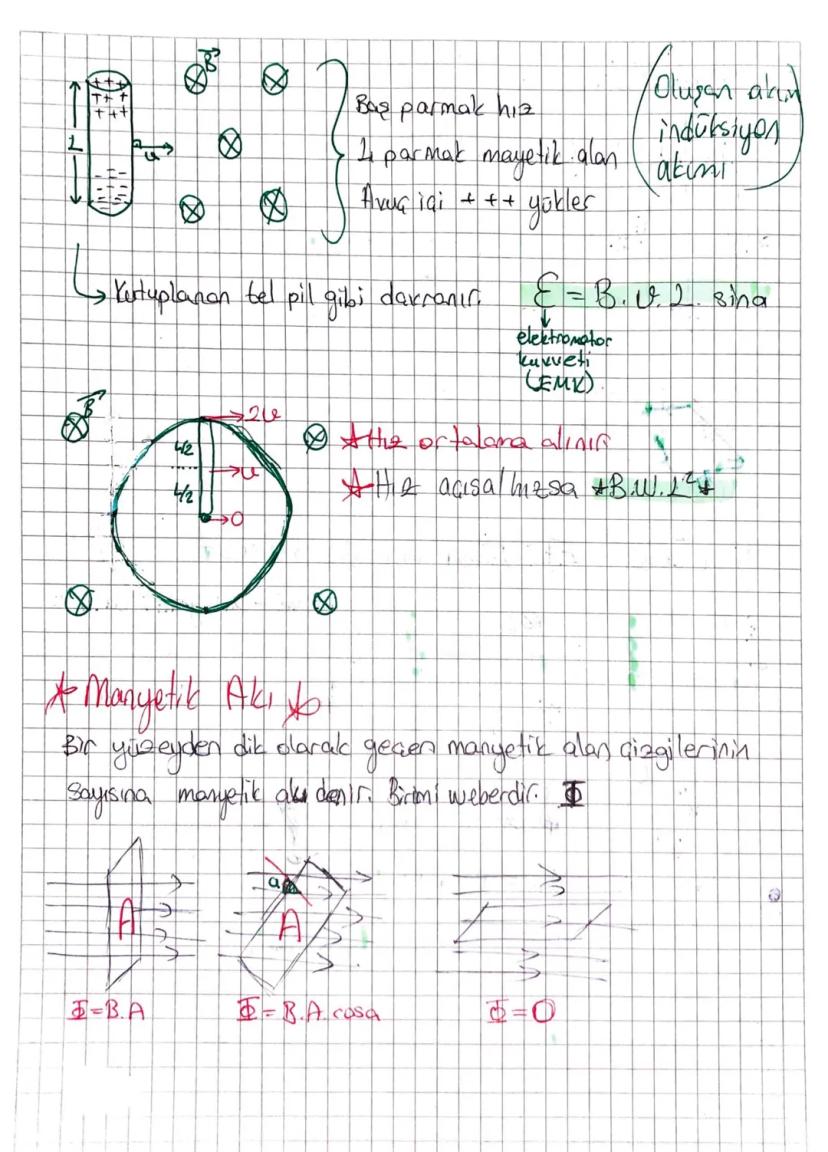 B
+++
+++
+++
L
v
Baş parmak hız
4 parmak mayetik alan
Avuç içi + ++ yükler
Oluşan akım
indüksiyon
akımı
tel pil gibi davranır.
Ɛ = B. v. L. sina
elektromotor
kuvveti
(EMK)
B
2v
L/2
v
L/2
0
Hız ortalama alınır
Hız açısal hızsa *B.W.L²*
* Manyetik Akı *
Bir yüzeyden dik olarak geçen manyetik alan çizgilerinin
sayısına manyetik akı denir. Birimi weberdir. Φ
A
a
A
Φ=B.A
Φ=B.A.cosa
Φ=0